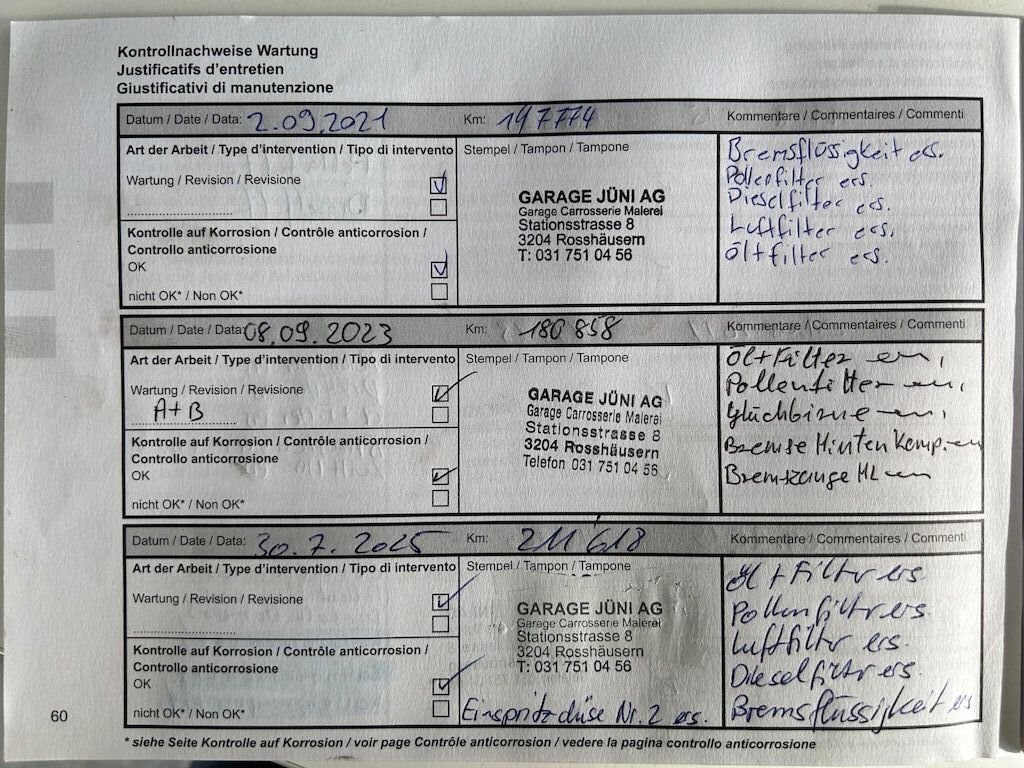 Kontrollnachweise Wartung
Justificatifs d'entretien
Giustificativi di manutenzione
Datum / Date / Data: 2.09.2021
Km: 197774
Kommentare / Commentaires / Commenti
Art der Arbeit / Type d'intervention / Tipo di intervento
Stempel / Tampon / Tampone
Wartung / Revision / Revisione
Kontrolle auf Korrosion / Contrôle anticorrosion /
Controllo anticorrosione
OK
nicht OK* / Non OK*
GARAGE JÜNI AG
Garage Carrosserie Malerei
Stationsstrasse 8
3204 Rosshäusern
T: 031 751 04 56
Bremsflüssigkeit ers.
Pollenfilter ers.
Dieselfilter ers.
Luftfilter ers.
Öl+filter ers.
Datum / Date / Data: 08.09.2023
Km: 180 858
Kommentare / Commentaires / Commenti
Art der Arbeit / Type d'intervention / Tipo di intervento
Stempel / Tampon / Tampone
Wartung / Revision / Revisione
A+B
Kontrolle auf Korrosion / Contrôle anticorrosion /
Controllo anticorrosione
OK
nicht OK* / Non OK*
GARAGE JÜNI AG
Garage Carrosserie Malerei
Stationsstrasse 8
3204 Rosshäusern
Telefon 031 751 04 56
Öl+Filter
Pollenfilter
Bremse Hinten Komp.
Bremszange HL
Datum / Date / Data: 30.7.2025
Km: 211'618
Kommentare / Commentaires / Commenti
Art der Arbeit / Type d'intervention / Tipo di intervento
Stempel / Tampon / Tampone
Wartung / Revision / Revisione
Kontrolle auf Korrosion / Contrôle anticorrosion /
Controllo anticorrosione
OK
nicht OK* / Non OK*
GARAGE JÜNI AG
Garage Carrosserie Malerei
Stationsstrasse 8
3204 Rosshäusern
T: 031 751 04 56
Einspritzdüse Nr. 2 ers.
Öl+Filtr ers.
Pollenfiltr ers.
Luftfilter ers.
Dieselfiltr ers.
Bremsflüssigkeit ers
60
* siehe Seite Kontrolle auf Korrosion / voir page Contrôle anticorrosion / vedere la pagina controllo anticorrosione